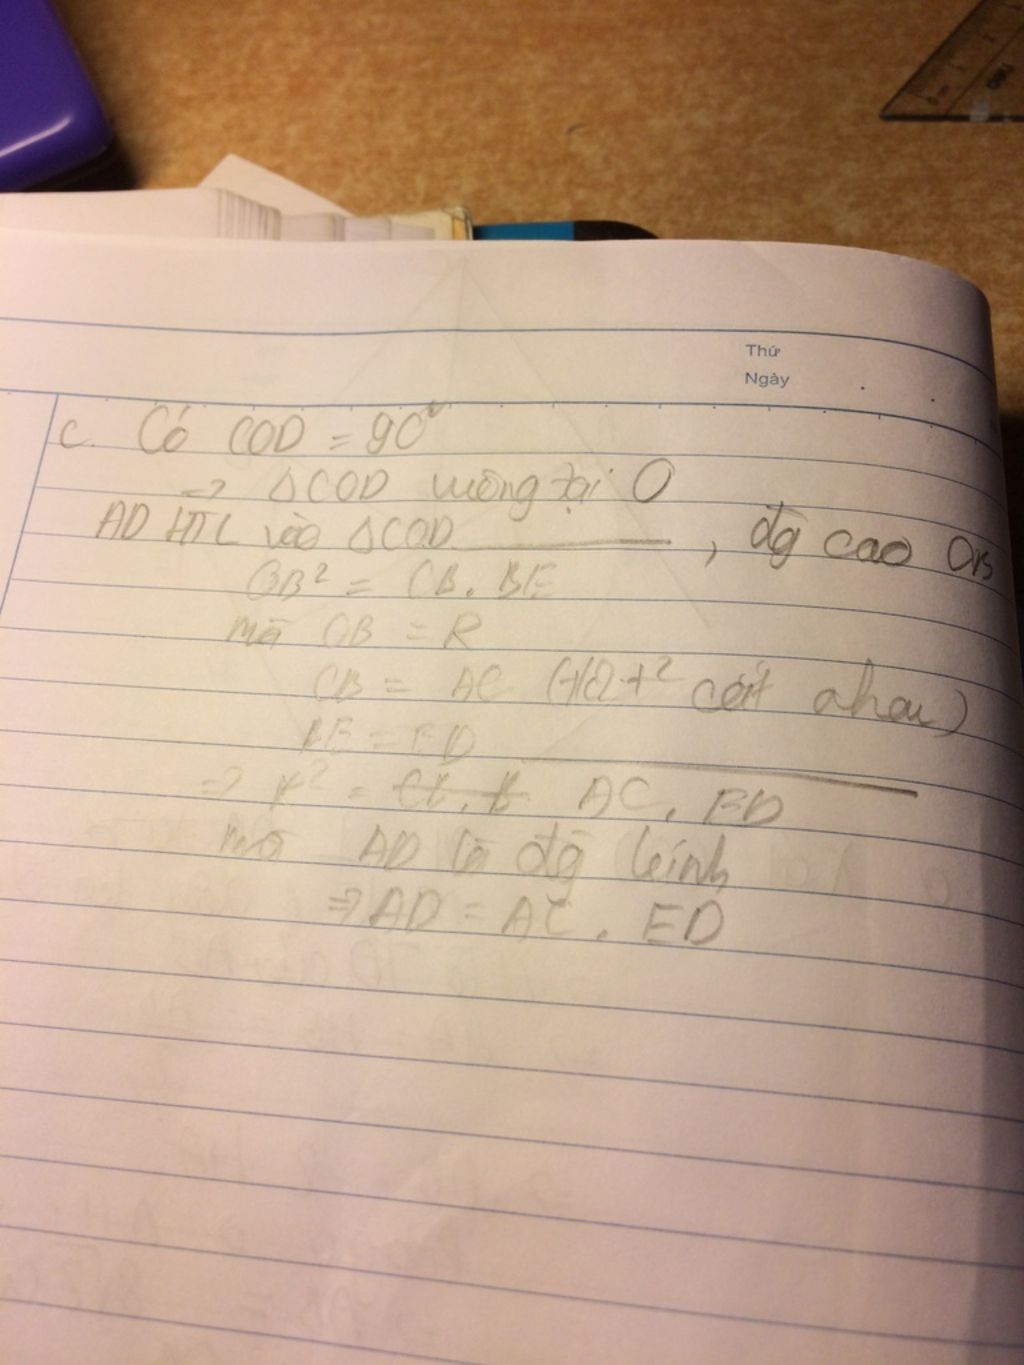 Thứ
Ngày
c. Có COD = 90°
=> △COD vuông tại O
AD HTL vào △COD , đg cao OB
OB² = CB. BE
mà OB = R
CB = AC ( 2 t² cắt nhau)
BE = ED
=> R² = AC. ED
mà AD là đg kính
=> AD = AC. ED